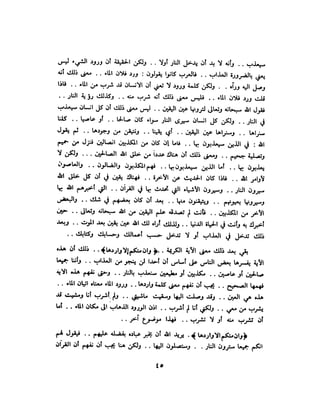 سيعذب .. وأنه لا بد أن يدخل النار أولا .. ولكن الحقيقة أن ورود الشيء ليس
يعني بالضرورة العذاب .. فالعرب كانوا يقولون : ورد فلان الماء .. معنى ذلك أنه
وصل اليه ورآه .. ولكن كلمة ورود لا تعني أن الانسان قد شرب من الماء .. فاذا
قلت ورد فلان الماء .. فليس معنى ذلك أنه شرب منه .. وكذلك رؤية النار ..
فقول الله سبحانه وتعالى لترونها عين اليقين .. ليس معنى ذلك أن كل انسان سيعذب
في النار .. ولكن كل انسان سيرى النار سواء كان صالحا .. أو عاصيا .. كلنا
سنراها .. وسنراها عين اليقين .. أي يقينا .. ونتيقن من وجودها .. ثم يقول
الله : في الذين سيعذبون بها .. فاما إن كان من المكذبين الضالين فنزل من حميم
وتصلية جحيم .. ومعنى ذلك أن هناك عددا من خلق الله الصالحين ... ولكن لا
يعذبون بها .. أما الذين سيعذبون بها .. فهم المكذبون والضالون .. والعاصون
لأوامر الله .. فاذا كان الحديث عن الآخرة .. فهناك يقين في أن كل خلق الله
سيرون النار .. وسيرون الأشياء التي تحدثت بها في القرآن .. التي أخبرهم الله بها
وسيرونها بعيونهم .. ويتيقنون منها .. بعد أن كان بعضهم في شك .. والبعض
الآخر من المكذبين .. فأنت لم تصدقه علم اليقين من الله سبحانه وتعالى .. حين
أخبرك به وأنت في الحياة الدنيا .. ولذلك أراه لك الله عين يقين بعد الموت .. وبعد
ذلك تدخل في العذاب أو لا تدخل حسب أعمالك وحسابك وكتابك ..
بقي بعد ذلك معنى الآية الكريمة .. ﴿ وان منكم الا واردها ﴾ .. ذلك أن هذه
الآية يفسرها بعض الناس على أساس أن أحدا لن ينجو من العذاب .. وأننا جميعا
صالحين أو عاصين .. مكذبين أو مطيعين سنعذب بالنار .. وحتى نفهم هذه الآية
فهمها الصحيح .. يجب أن نفهم معنى كلمة واردها .. ورود الماء معناه اتيان الماء ..
هذه هي العين .. وقد وصلت اليها وسقيت ماشيتي .. ولم أشرب أنا ومشيت قد
يشرب من معي .. ولكني أنا لم أشرب .. اذن الورود الذهاب الى مكان الماء .. أما
أن تشرب منه أو لا تشرب .. فهذا موضوع آخر ..
﴿ وان منكم الا واردها ﴾ .. يريد الله أن يخبر عباده بفضله عليهم .. فيقول لهم
انكم جميعا سترون النار .. وستصلون اليها .. ولكن هنا يجب أن نفهم أن القرآن
٤٥